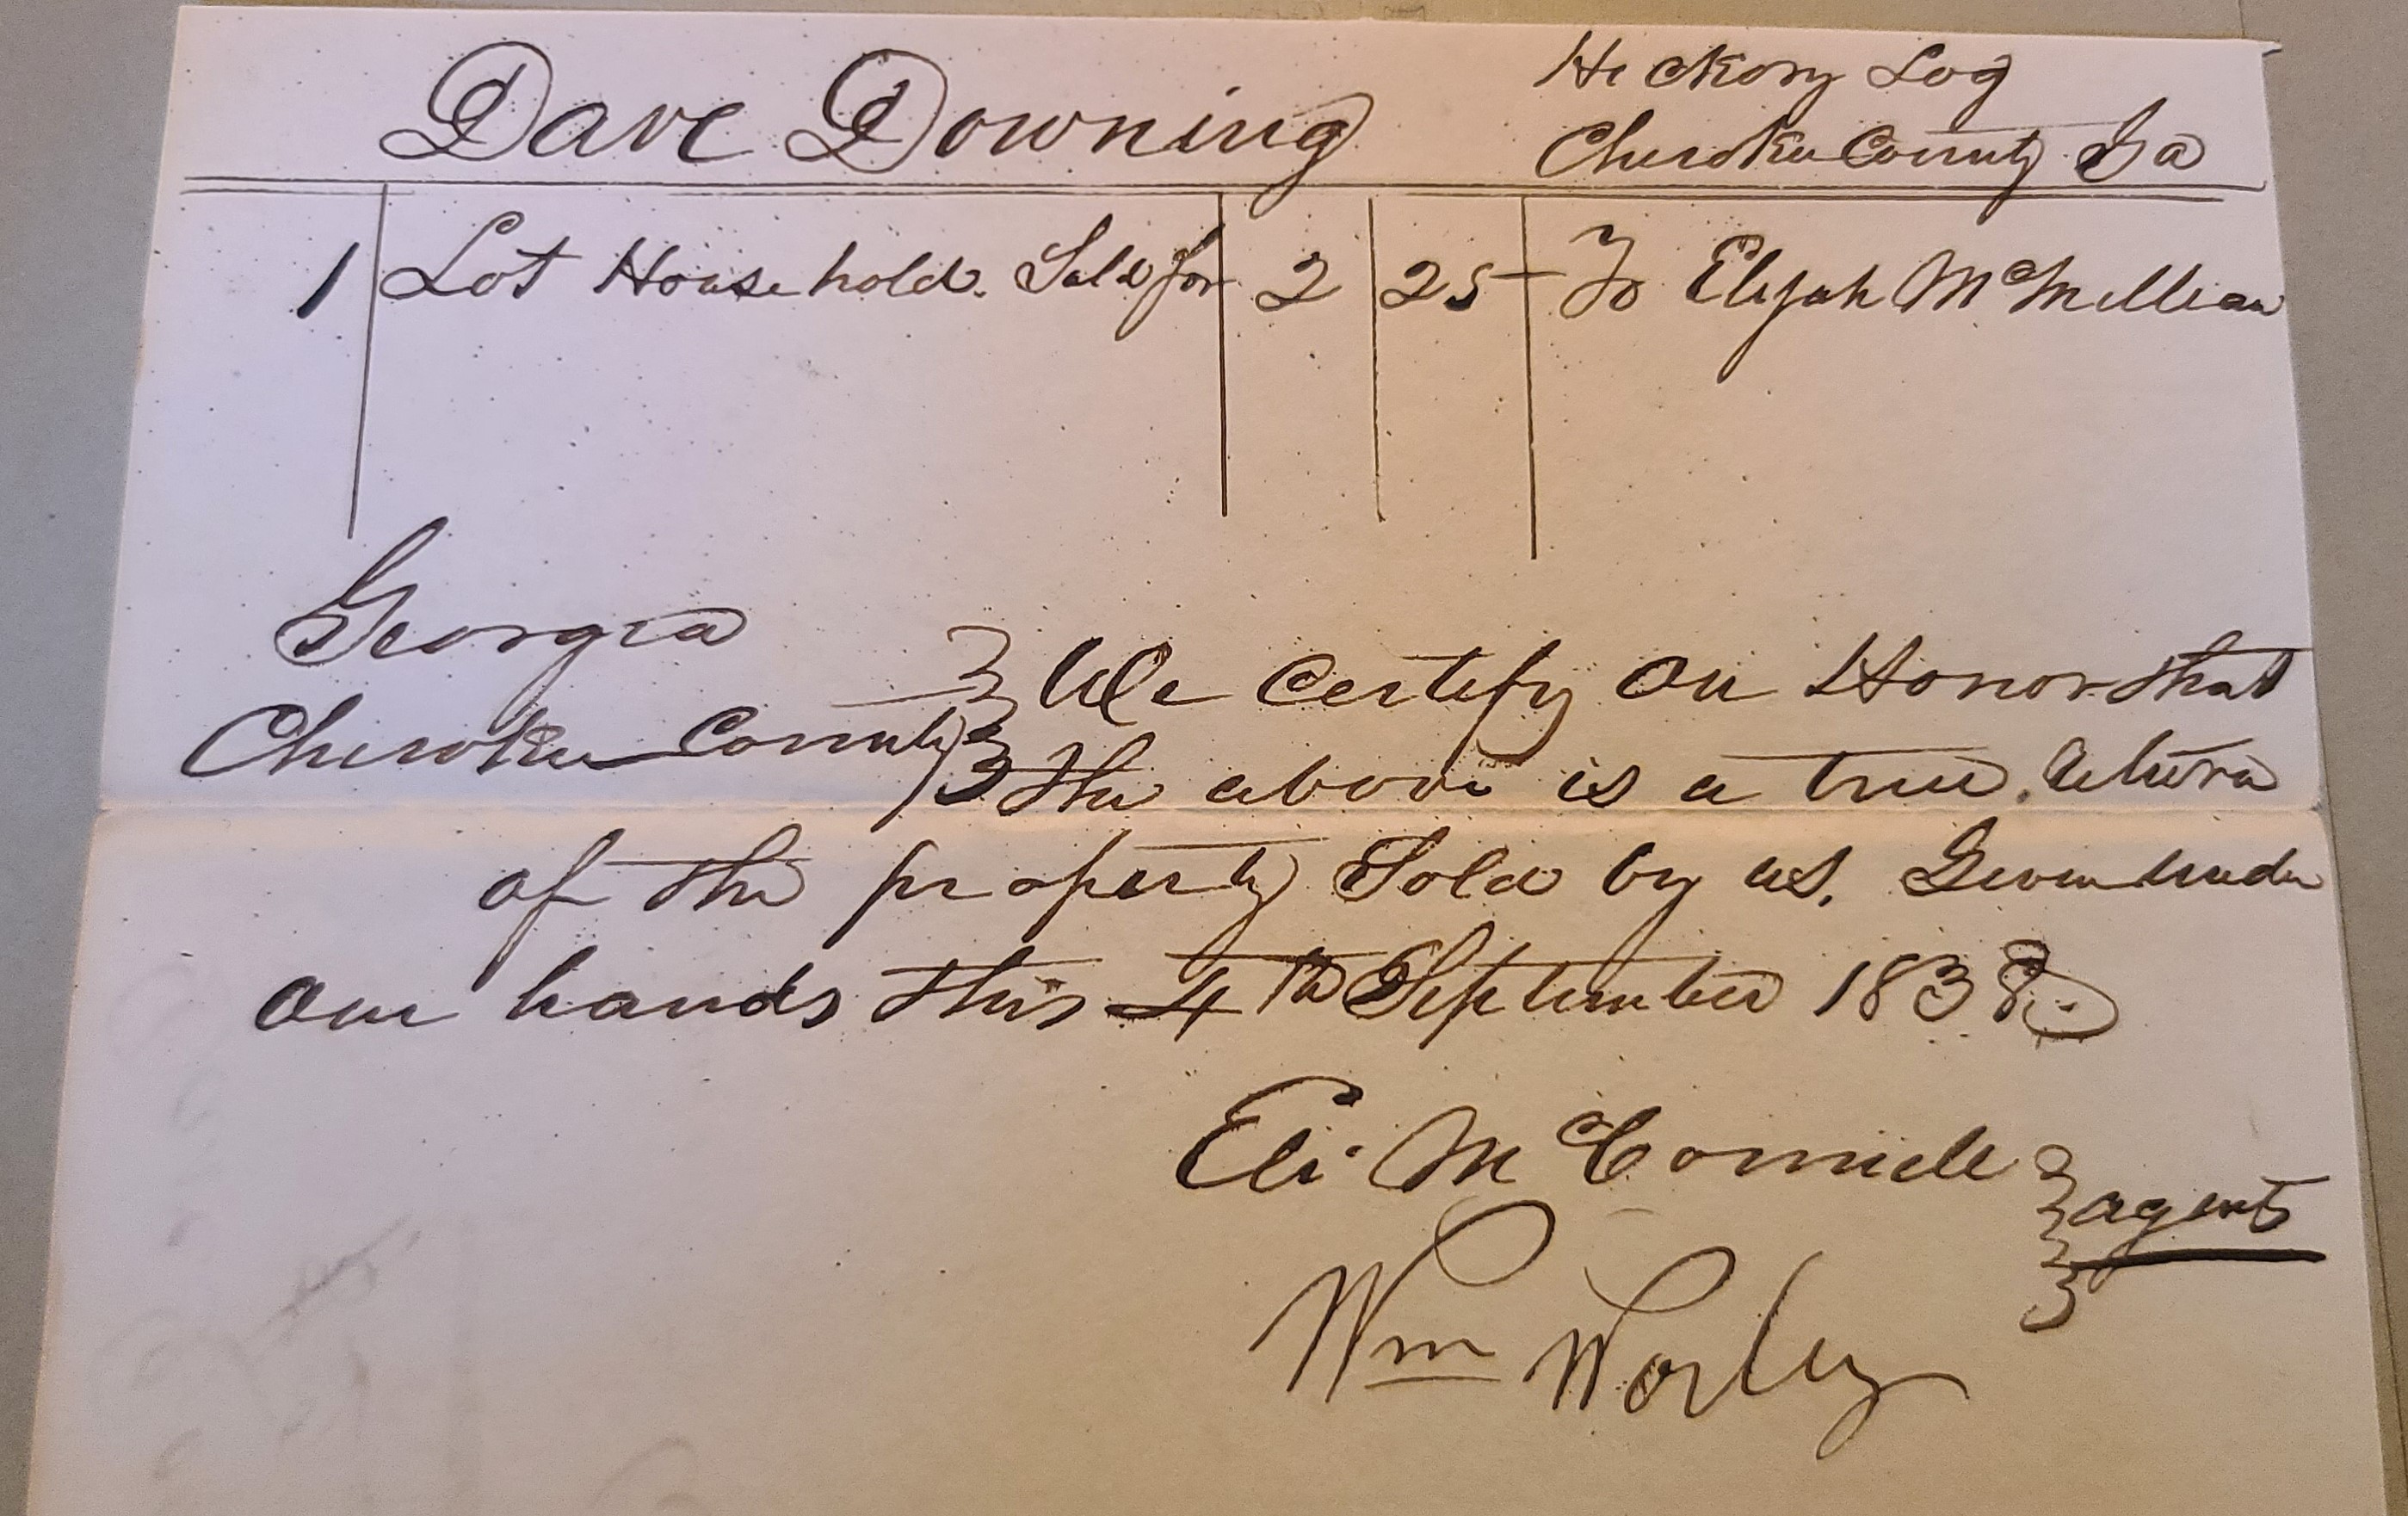 Dave Downing
Hickory Log
Cherokee County Ga
1 Lot Household. Sold for 2 25 To Elijah McMillian
Georgia
Cherokee County } We Certify On Honor that
the above is a true return
of the property Sold by us. Given under
Our hands this 4th September 1838
Eli McConnell
agents
Wm Worley